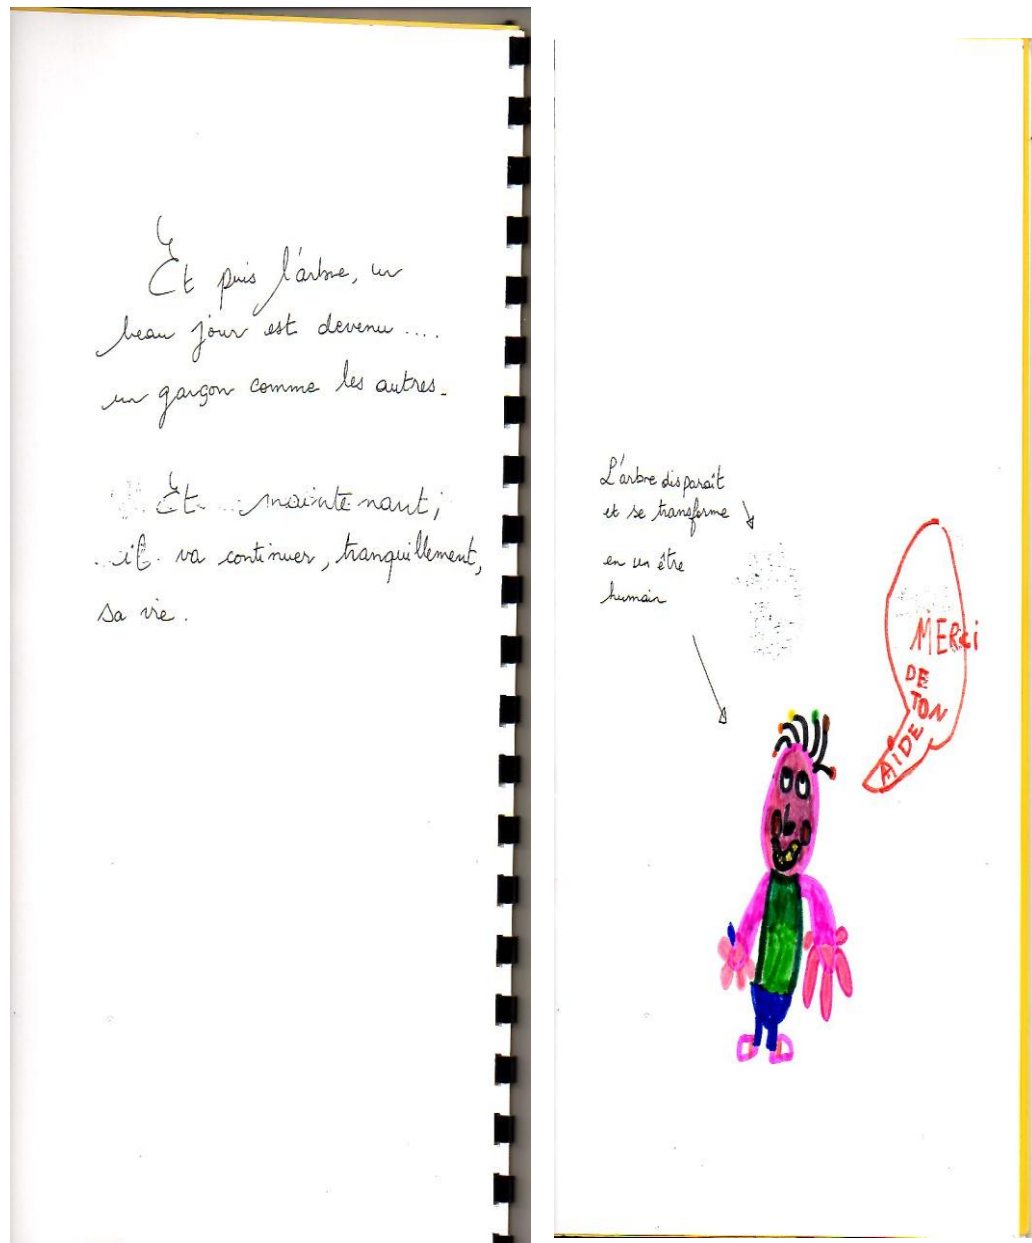 Et puis l'arbre, un
beau jour est devenu ....
un garçon comme les autres.
Et maintenant,
il va continuer, tranquillement,
sa vie.
L'arbre disparaît
et se transforme
en un être
humain
MERCi
DE
TON
AIDE